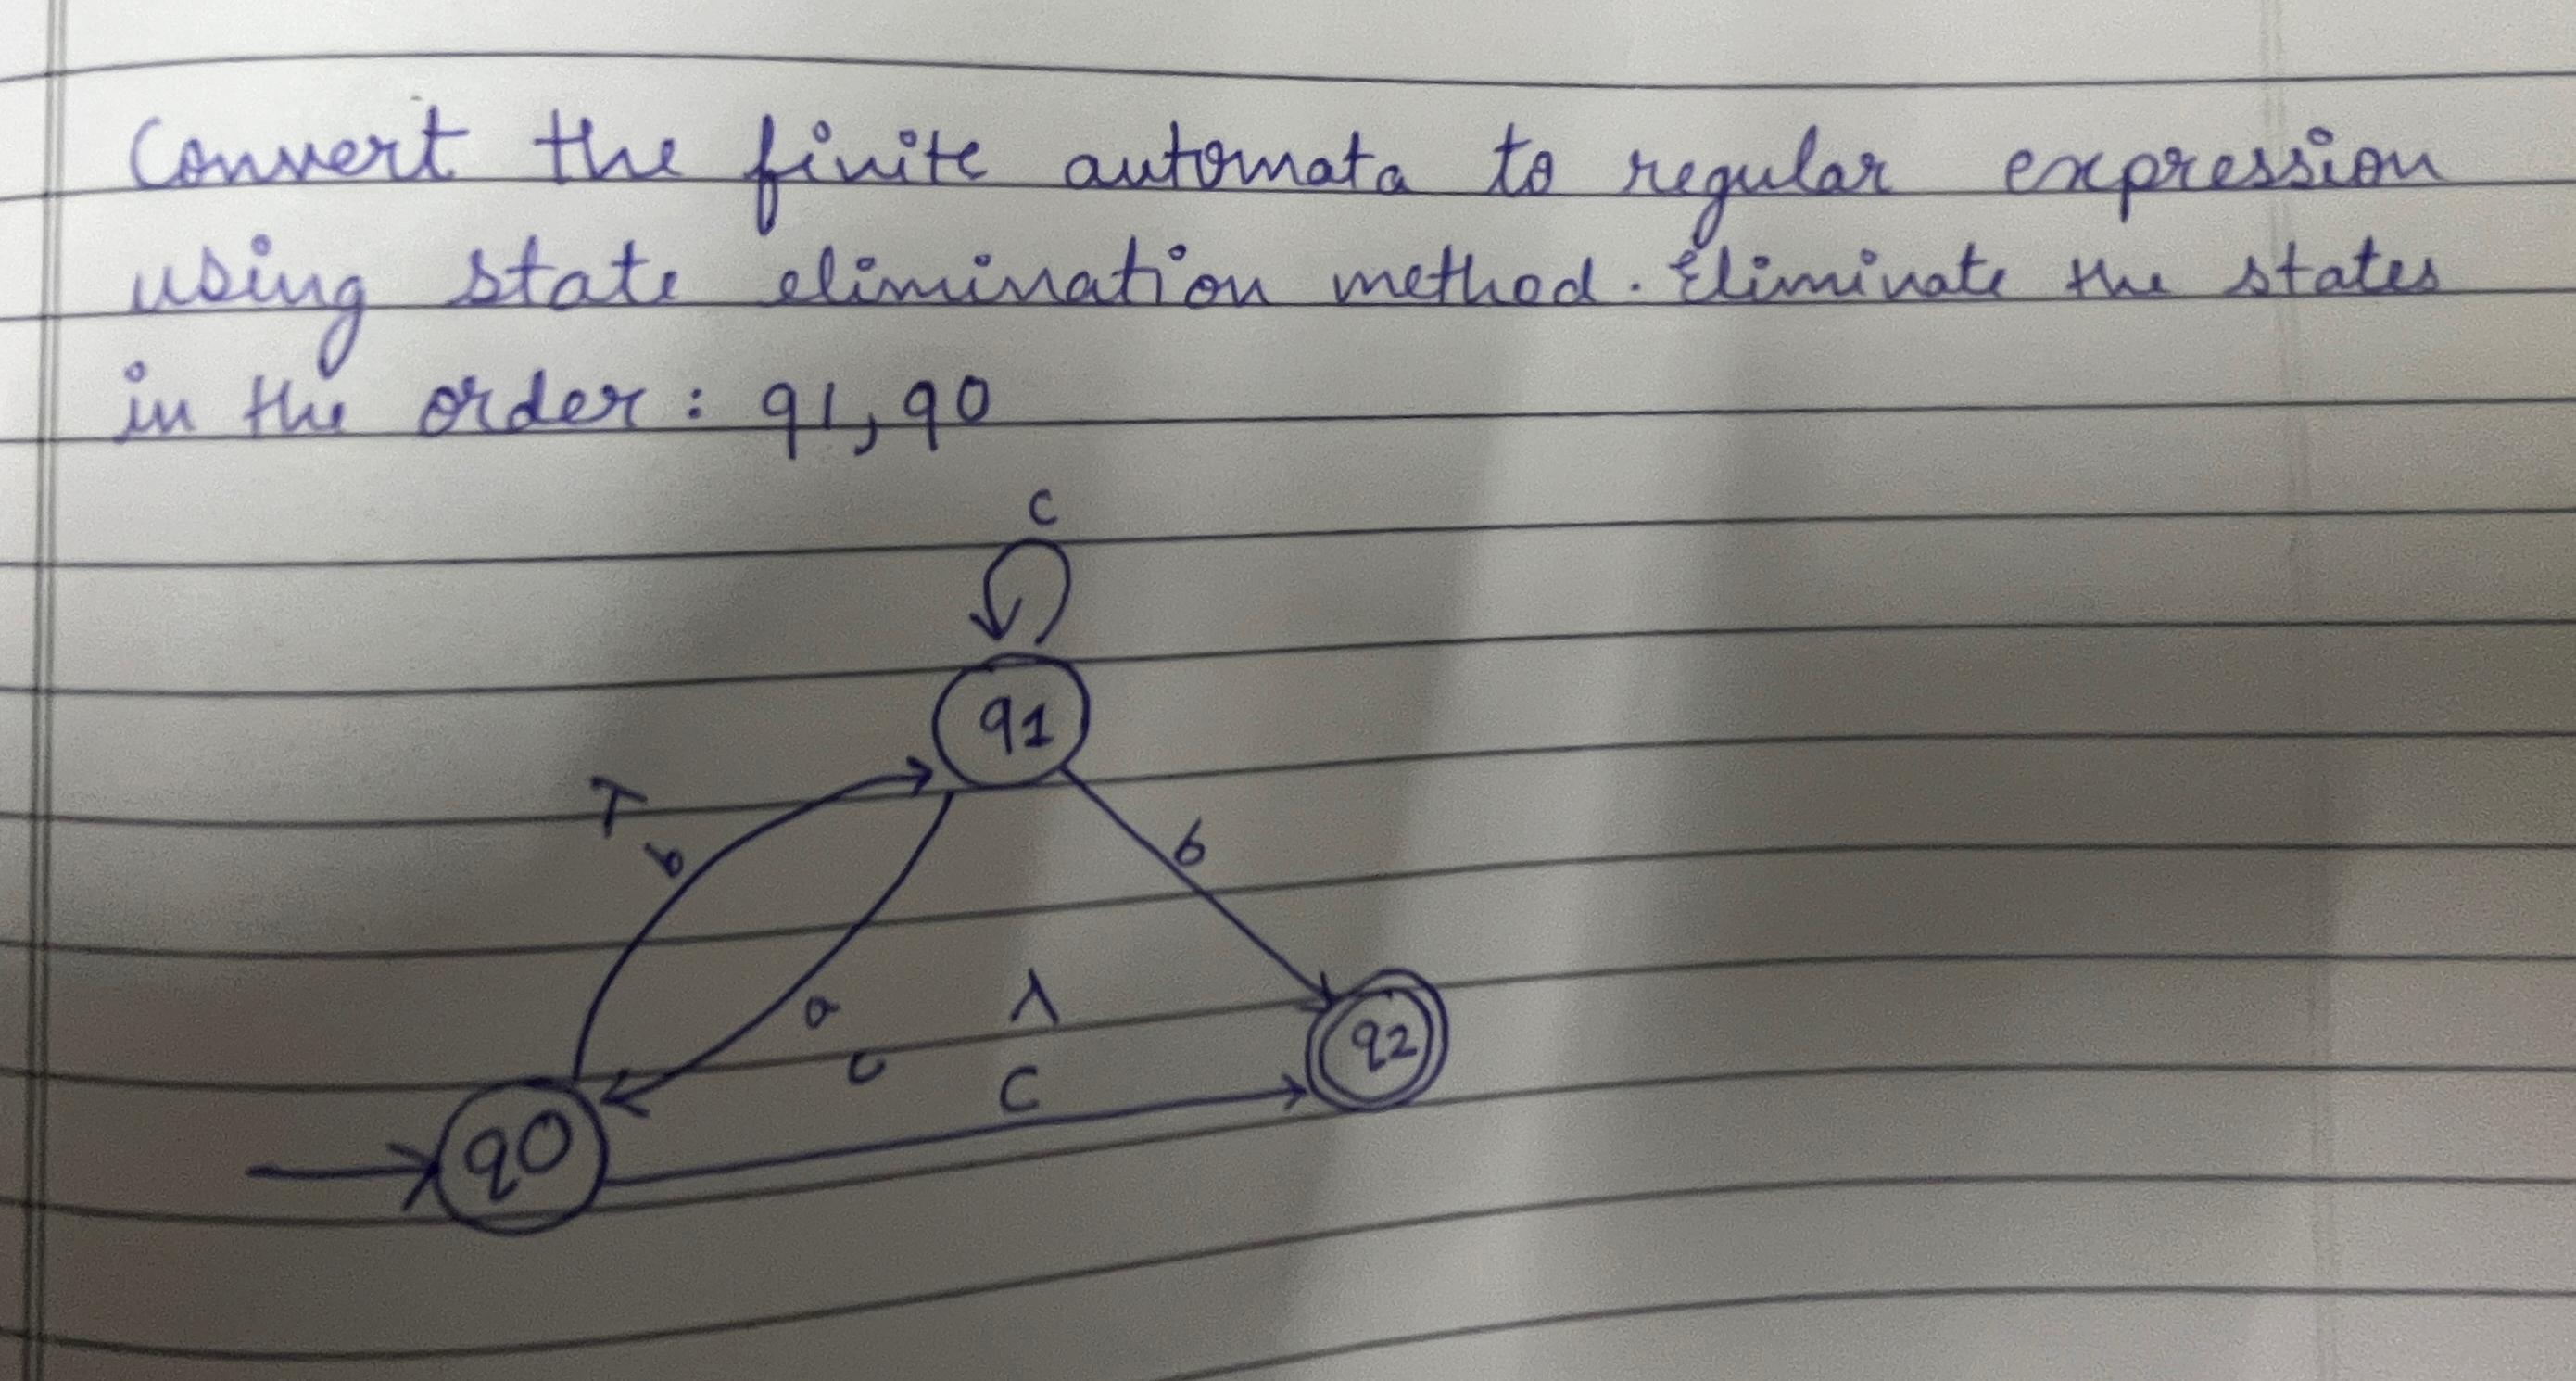 Convert the finite automata to regular expression
using state elimination method. Eliminate the states
in the order: q1, q0
c
q1
λ
b
b
a
λ
c
c
q2
q0